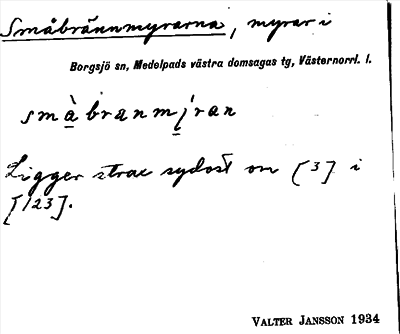 Småbrännmyrarna, myrar i
Borgsjö sn, Medelpads västra domsagas tg, Västernorrl. l.
Ligger strax sydost om [3] i
[123].
VALTER JANSSON 1934